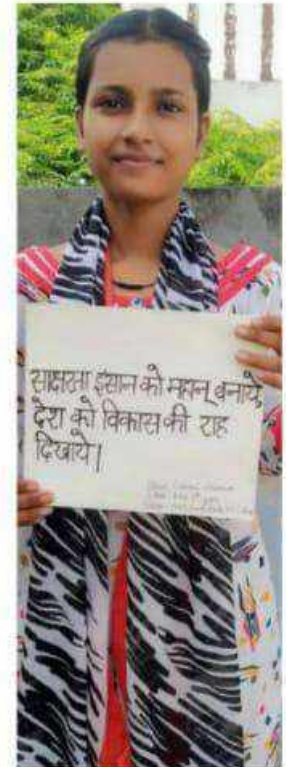 साक्षरता इंसान को महान् बनाये,
देश को विकास की राह
दिखाये।